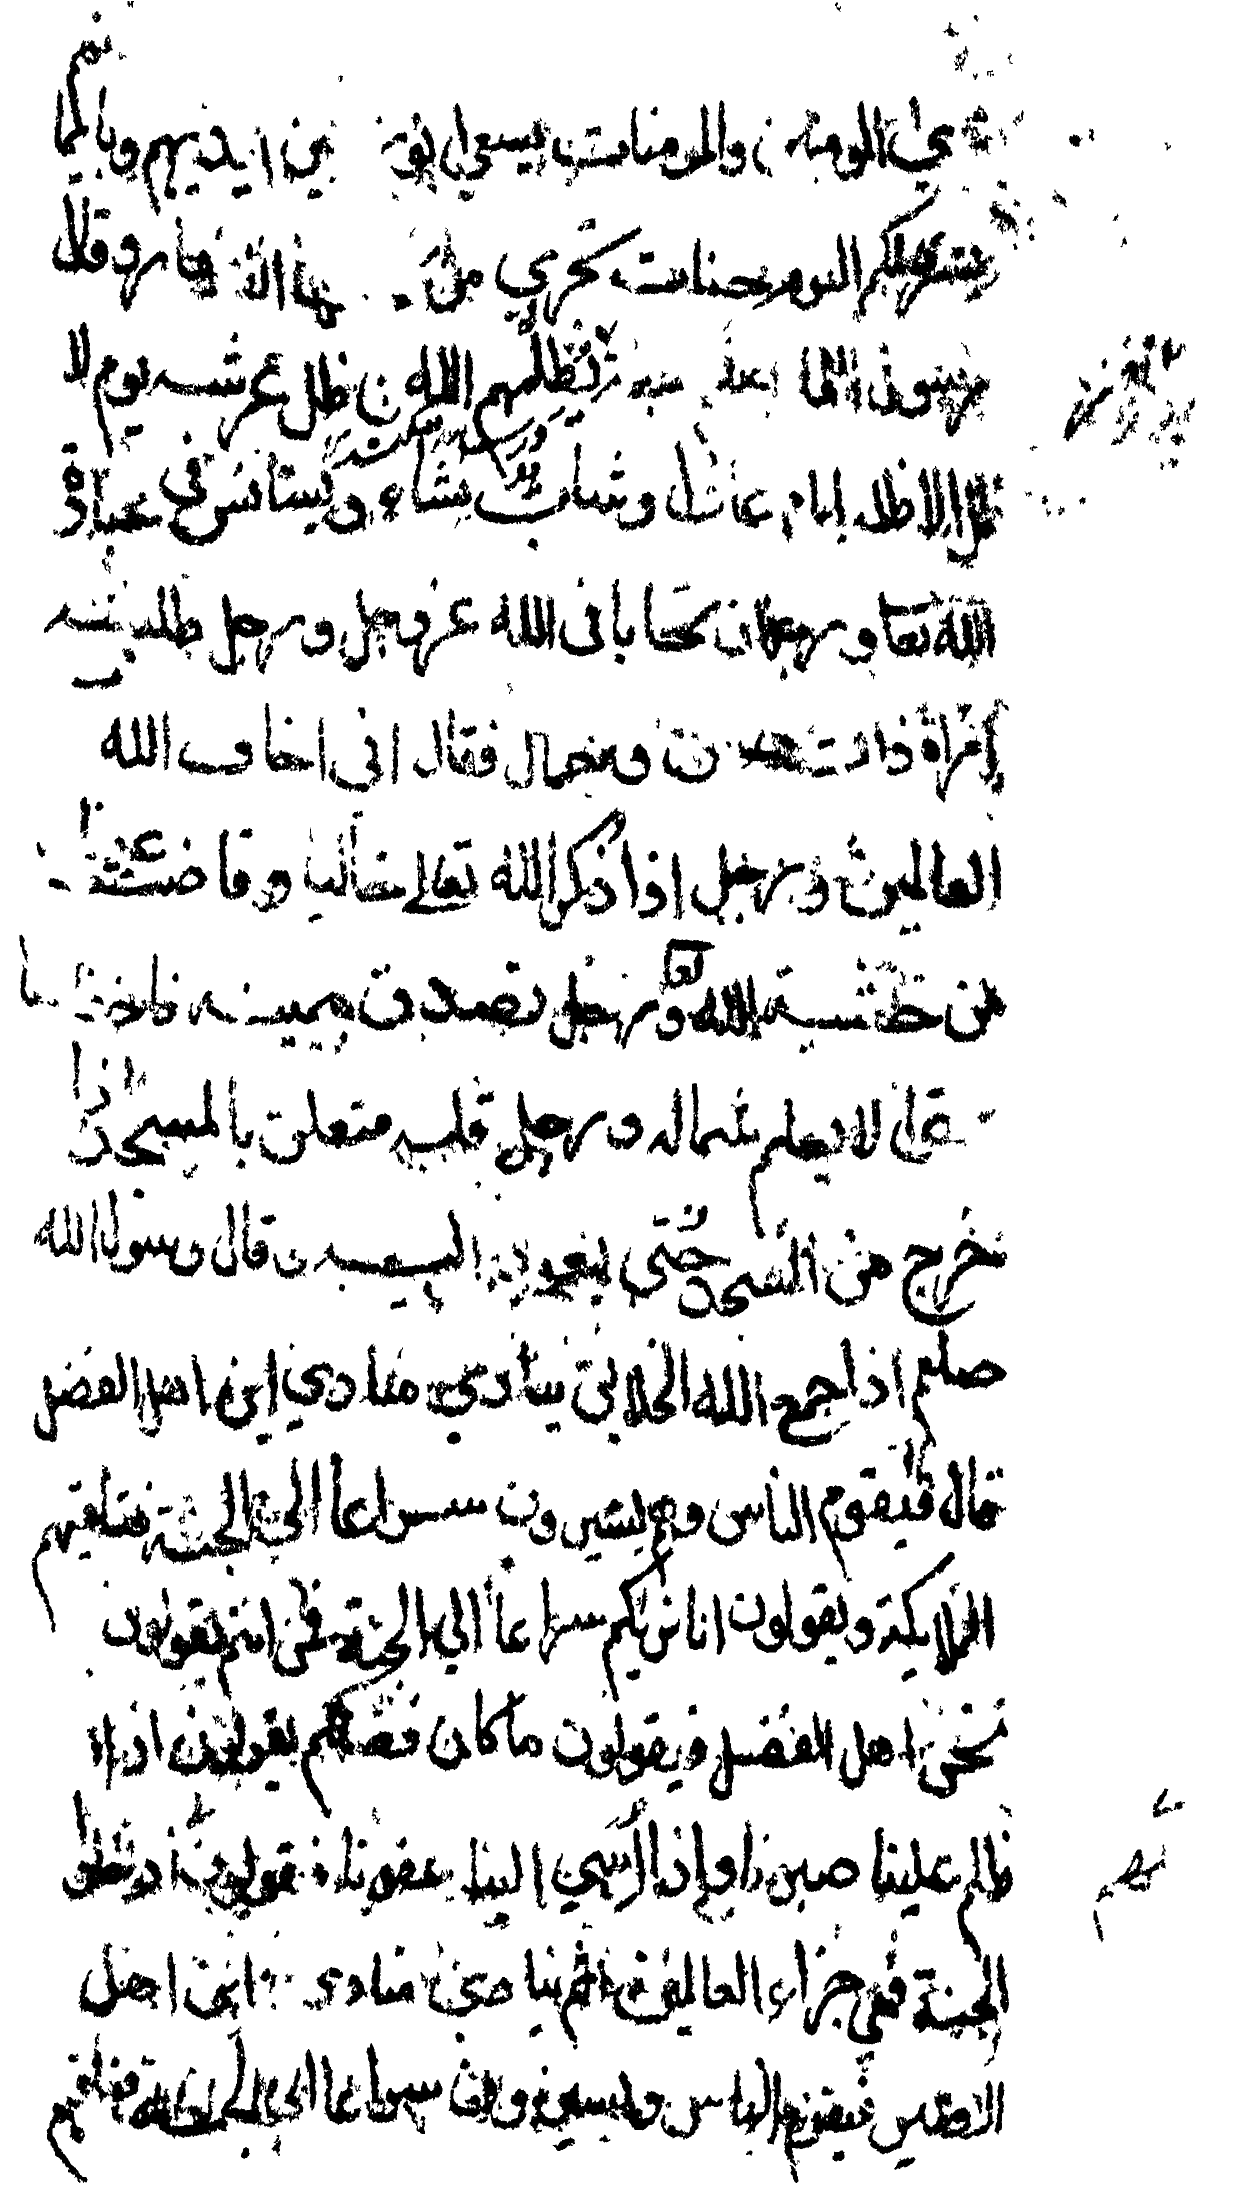 ترى المومنين والمومنات يسعى نورهم بين ايديهم وبايما نهم
بشريكم اليوم جنات تجري من تحتها الانهار وقال
رسول الله سبعة يظلهم الله في ظل عرشه يوم لا
ظل الا ظله امام عادل وشاب يشاء ويستانس في عبادة
الله تعا ورجلان تحابا فى الله عز وجل ورجل طلبته
امراة ذات حسن وجمال فقال انى اخاف الله
العالمين ورجل اذا ذكر الله تعالى خاليا وفاضت عيناه
من خشية الله تعا ورجل تصدق بيمينه فاخفا ها
لا يعلم شماله ورجل قلبه متعلق بالمسجد اذا
خرج من المسجد حتى يعود اليه قال رسول الله
صلعم اذا جمع الله الخلايق ينادي منادي اين اهل الفضل
قال فيقوم الناس وهم يسيرون سراعا الى الجنة فتلقيهم
الملايكة ويقولون انا نريكم سراعا الي الجنة فمن انتم يقولون
نحن اهل الفضل فيقولون ما كان فضلكم يقولون اذا
ظلم علينا صبرنا واذا اسي الينا عفونا فيقولون ادخلوا
الجنة فنعم جزاء العاملين ثم ينادي منادى اين اهل
فيقوم الناس ويسيرون سراعا الى الجنة فتلقيهم